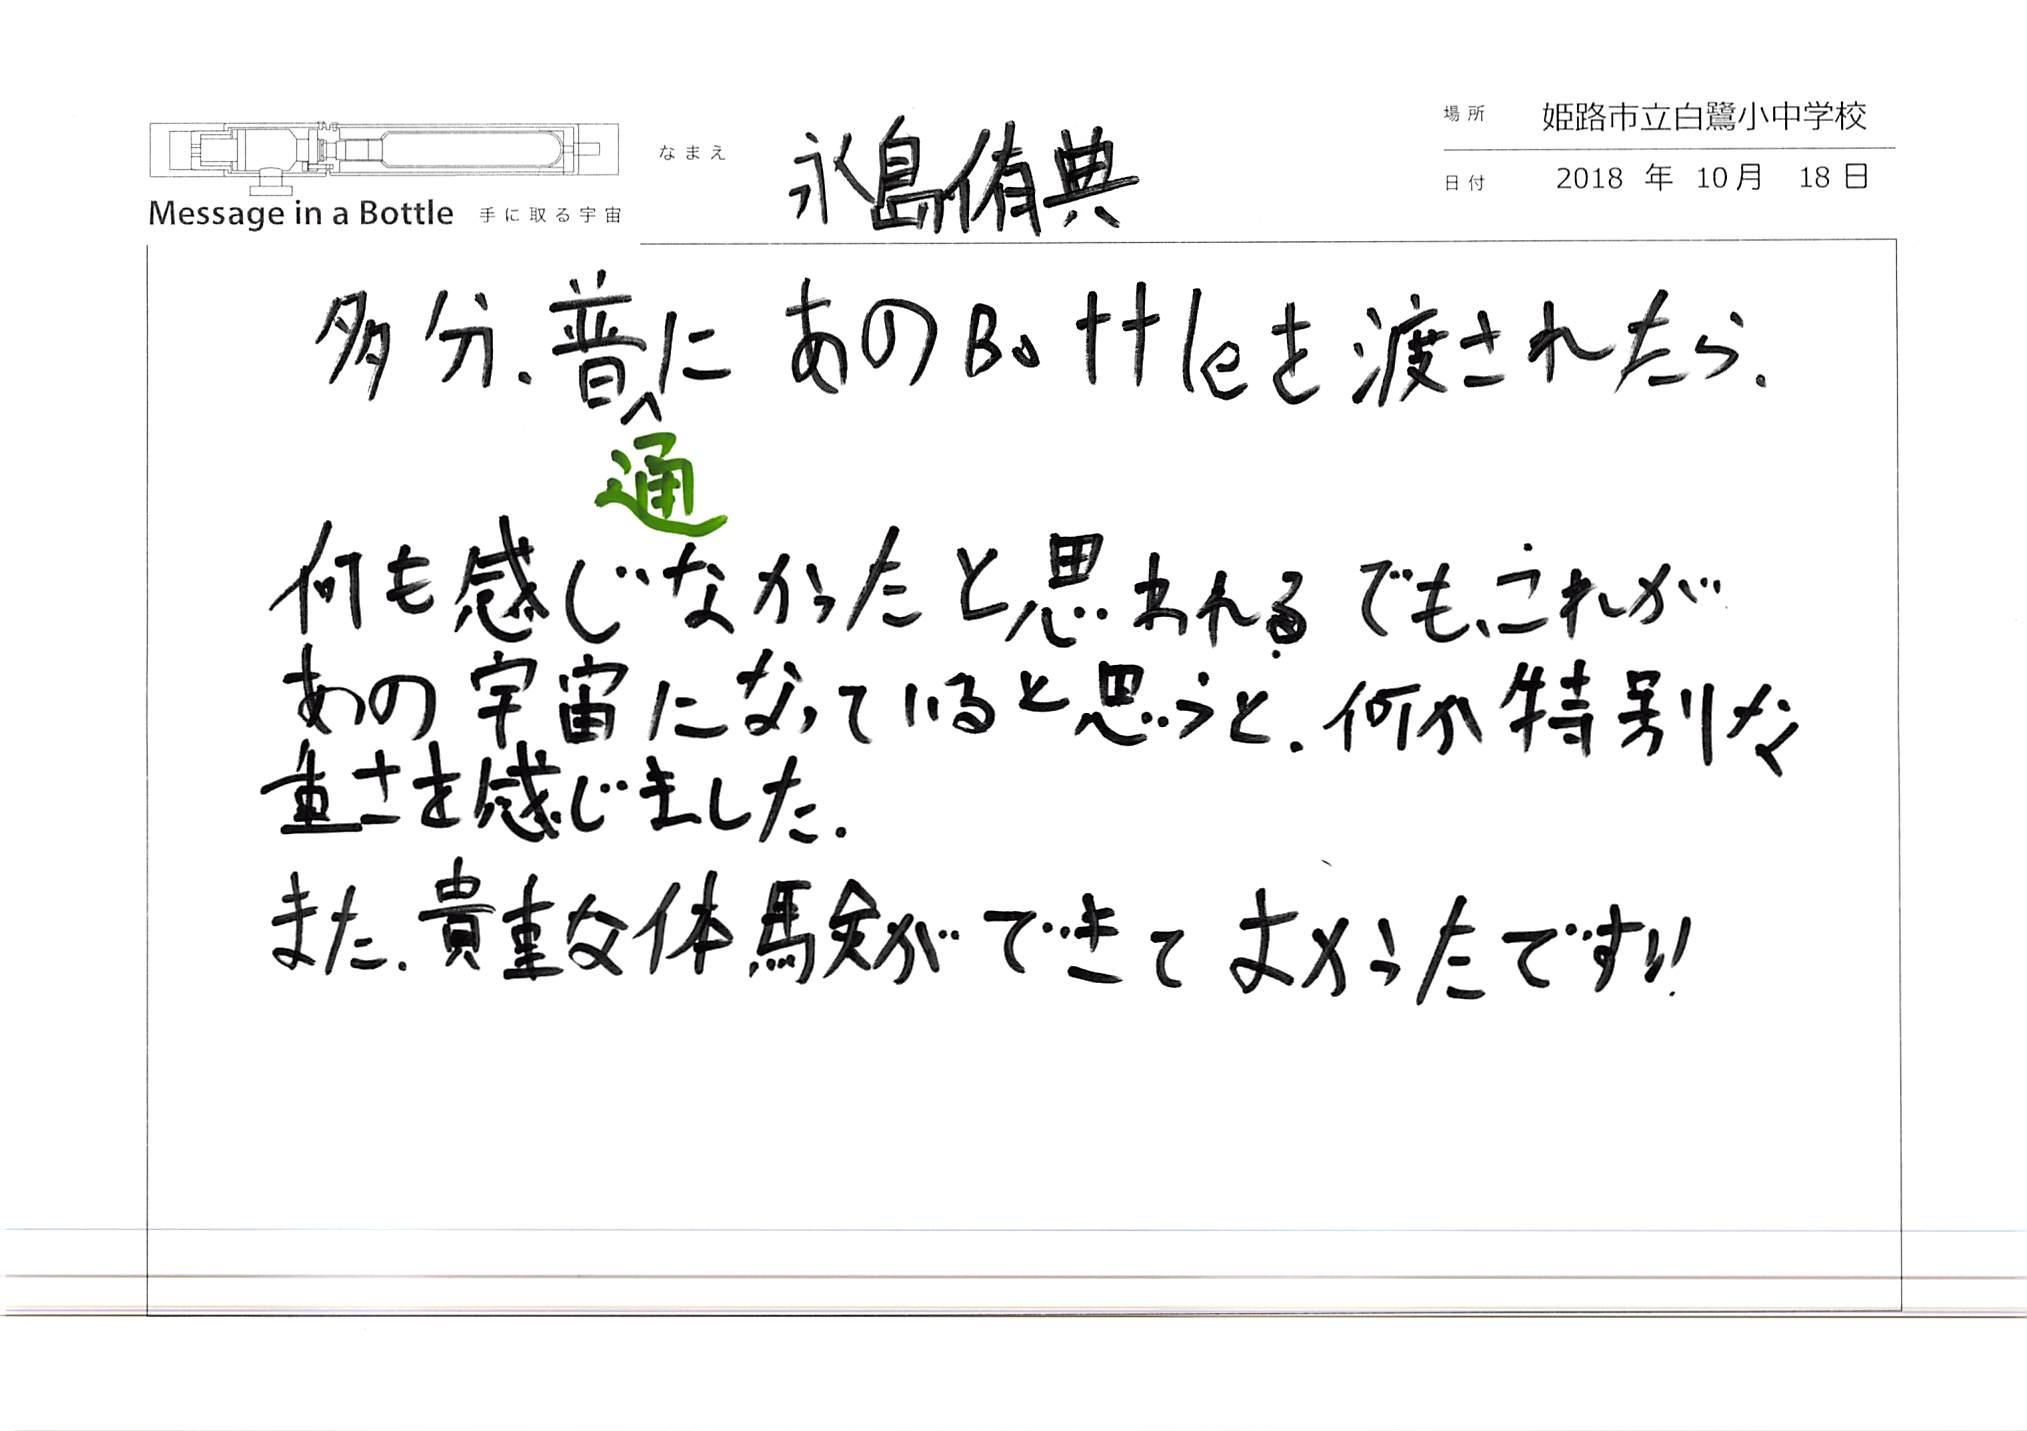 場所 姫路市立白鷺小中学校
なまえ 永島侑典
日付 2018 年 10 月 18 日
Message in a Bottle 手に取る宇宙
多分、普通に あのBottleを渡されたら、
何も感じなかったと思われる でも、これが
あの宇宙になっていると思うと、何か特別な
重さを感じました。
また、貴重な体験ができてよかったです!!